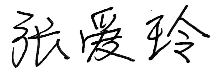 张爱玲